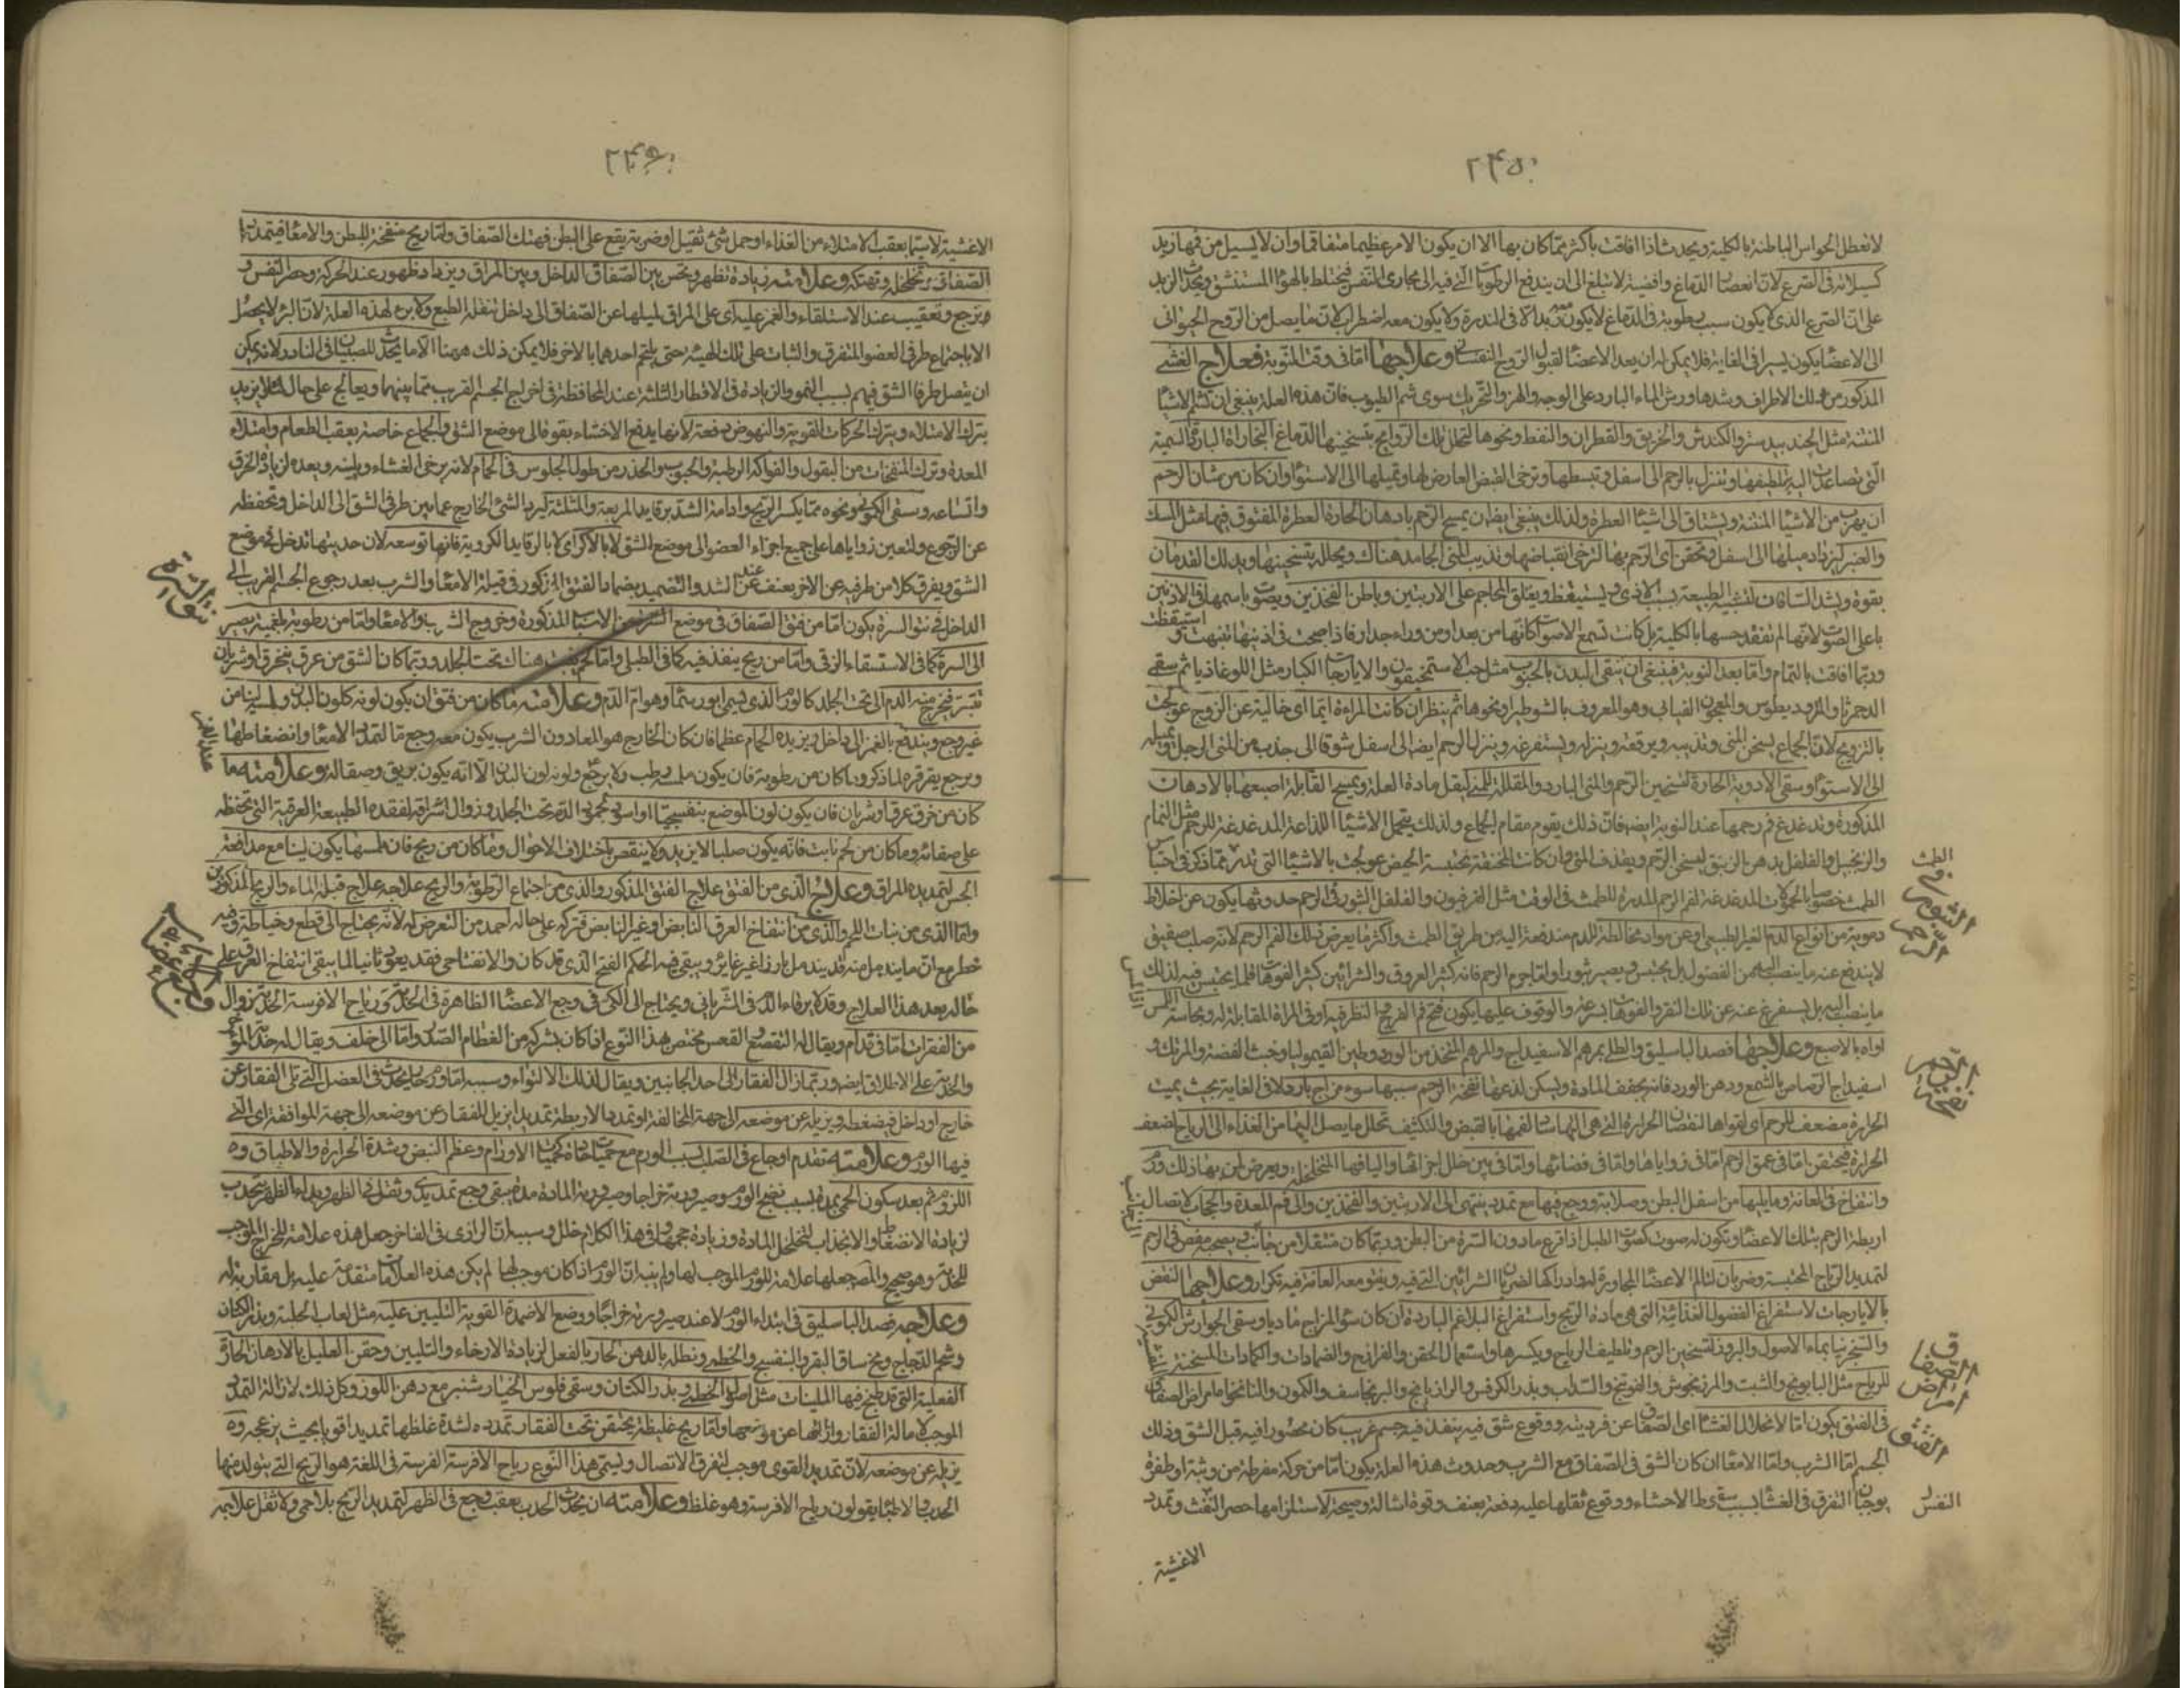 ٢٤٥
لا تعطل الحواس الباطنة بالكلية ويحدث اذا افاقت باكثر مما كان بها الا ان يكون الامر عظيما متفاقما وان لا يسيل من فمها زبد
كسيلانه فى الصرع لان انعصار الدماغ واقضيته لا تبلغ الى ان يندفع الرطوبات التى فيه الى مجارى التنفس فيختلط بالهواء المستنشق ويحدث الزبد
على ان الصرع الذى لا يكون بسبب رطوبة فى الدماغ لا يكون معه زبد الا فى الندرة ولا يكون معه اضطراب لان ما يصل من الروح الحيوانى
الى الاعضاء يكون يسيرا فى الغاية فلا يمكنه ان يعد الاعضاء لقبول الروح النفسانى وعلاجها اما فى وقت النوبة فعلاج الغشى
المذكور من دلك الاطراف وشدها ورش الماء البارد على الوجه والهز والتحريك سوى شم الطيوب فان هذه العلة ينبغى ان تشم الاشياء
المنتنة مثل الجندبيدستر والكندش والخربق والقطران والنفط ونحوها لتحلل تلك الروائح بتسخينها الدماغ البخارات الباردة السمية
التى تصاعدت اليه وتلطفها وتنزل بالرحم الى اسفل وتبسطها وترخى القبض العارض لها وتميلها الى الاستواء وان كان من شان الرحم
ان يهرب من الاشياء المنتنة ويشتاق الى اشياء العطرة ولذلك ينبغى ايضا ان يمسح الرحم بادهان الحارة العطرة المفتوق فيها مثل المسك
والعنبر ليزداد ميلها الى اسفل وتحقن اى الرحم بها لترخى انقباضها وتذيب المنى الجامد هناك ويحلله بتسخينها ويدلك القدمان
بقوة ويشد الساقان لتنبيه الطبيعة بسبب الاذى وليستيقظ ويعلق المحاجم على الاربيتين وباطن الفخذين ويصوت باسمها فى الاذنين
باعلى الصوت لانهم لم تفقد حسها بالكلية بل كانت تسمع الاصوات كانها من بعد او من وراء جدار فاذا صيحت فى اذنيها تنبهت و
استيقظت
وربما افاقت بالتمام واما بعد النوبة فينبغى ان ينقى البدن بالحبوب مثل حب الاسطمخيقون والايارجات الكبار مثل اللوغاذيا ثم سقى
الدحمرثا والمثروديطوس والمعجون الغياثى وهو المعروف بالشوطيرا ونحوها ثم ينظر ان كانت المراة ايما اى خالية عن الزوج عولجت
بالتزويج لان الجماع يسخن المنى ويذيبه ويرققه وينزله ويستفرغه وينزل الرحم ايضا الى اسفل شوقا الى جذب من المنى الرجل ويميله
الى الاستواء وسقى الادوية الحارة لتسخين الرحم والمنى البارد والمقللة للمنى ليقل مادة العلة ويمسح القابلة اصبعها بالادهان
المذكورة وتدغدغ فم رحمها عند النوبة ايضا فان ذلك يقوم مقام الجماع ولذلك يتحمل الاشياء اللذاعة المدغدغة للرحم مثل النمام
والزنجبيل والفلفل بدهن الزنبق ليسخن الرحم ويقذف المنى وان كانت المختنقة محتبسة الحيض عولجت بالاشياء التى تدر مما ذكر فى احتباس
الطمث خصوصا بالحمولات المدغدغة لفم الرحم المدرة للطمث فى الوقت مثل الفرفيون والفلفل البثور فى الرحم حدوثها يكون عن اخلاط
دموية من انواع الدم الغير الطبيعى وعن مواد مخالطة للدم مندفعة اليه من طريق الطمث واكثر ما يعرض ذلك لفم الرحم لانه صلب صفيق
لا يندفع عنه ما ينصب اليه من الفضول بل يحتبس ويصير بثورا واما جرم الرحم فانه كثير العروق والشرائين كثير الفوهات فلما يحتبس فيه لذلك
ما ينصب اليه بل يستفرغ عنه عن تلك النقر والفوهات بسرعة والوقوف عليها يكون بفتح فم الفرج والنظر فيه او فى المراة المقابلة له ومجاسته
اواه بالاصبع وعلاجها فصد الباسليق والطلى بمرهم الاسفيداج والمرهم المتخذ من الورد وطين القيموليا وخبث الفضة والمرتك و
اسفيداج الرصاص بالشمع ودهن الورد فانه يجفف المادة ويسكن لذعها نفخة الرحم سببها سوء مزاج بارد لا فى الغاية بحيث يميت
الحرارة مضعف للرحم اى لقواها لنقصان الحرارة التى هى آلتها شانها بالقبض والتكثيف تحلل ما يصل اليها من الغذاء الى ارياح لضعف
الحرارة فيحتقن اما فى عمق الرحم اما فى زواياها واما فى فضائها واما فى بين خلل اجزائها واليافها المتخلخلة ويعرض لمن بها ذلك ورم
وانتفاخ فى العانة وما يليها من اسفل البطن وصلابة ووجع فيها مع تمدد ينتهى الى الاربيتين والفخذين والى فم المعدة والحجاب لاتصال
اربطة الرحم بتلك الاعضاء وتكون له صوت كصوت الطبل اذا قرع ما دون السرة من البطن وربما كان متنقلا من جانب ويصحبه مغص فى الرحم
لتمديد الرياح المحتبسة وضربان لتالم الاعضاء المجاورة له وادراكها لضربان الشرائين التى فيه وينتو معه العانة فيه تكرار وعلاجها النفض
بالايارجات لاستفراغ الفضول الغذائية التى هى مادة الريح واستفراغ البلاغم الباردة ان كان سوء المزاج ماديا وسقى الجوارش الكمونى
والشجرنيا بماء الاصول والبزور لتسخين الرحم وتلطيف الرياح ويكسرها واستعمال الحقن والفرازج والضمادات والكمادات المسخنة
للرياح مثل البابونج والشبت والمرزنجوش والفوتنج والسذاب وبذر الكرفس والرازيانج والبرنجاسف والكمون والنانخواه امراض الصفاق
فى الفتق يكون اما لانحلال الغشاء اى الصفاق عن فرديته ووقوع شق فيه ينفذ فيه جسم غريب كان محصورا فيه قبل الشق وذلك
الجسم اما الثرب واما الامعاء ان كان الشق فى الصفاق مع الثرب وحدوث هذه العلة يكون اما من حركة مفرطة من وثبة او طفرة
يوجبان التفرق فى الغشاء بسبب سقوط الاحشاء ووقوع ثقلها عليه دفعة بعنف وقوة اشالة وصيحة لاستلزامها حصر النفث وتمدد
النفس
الاغشية
الطمث
البثور فى الرحم
نفخة الرحم
امراض الصفاق
الفتق
٢٤٦
الاغشية لا سيما بعقب الامتلاء من الغذاء او حمل شئ ثقيل او ضربة يقع على البطن فهتك الصفاق واما ريح منفخة للبطن والامعاء فيتمدد
الصفاق وتخلخله وتهتكه وعلامته زيادة تظهر وتحس بين الصفاق الداخل وبين المراق ويزداد ظهور عند الحركة وحصر النفس و
وترجع وتغيب عند الاستلقاء والغمز عليه اى على المراق لميلها عن الصفاق الى داخل بثقله الطبع ولا برء لهذه العلة لان البرء لا يحصل
الا باجتماع طرفى العضو المتفرق والثبات على تلك الهيئة حتى يلتحم احدهما بالاخر فلا يمكن ذلك ههنا الا ما يحدث للصبيان فى النادر لانه يمكن
ان يتصل طرفا الشق فيهم بسبب النمو والزيادة فى الاقطار الثلثة عند المحافظة فى اخراج الجسم القريب مما بينهما ويعالج على حال لئلا يزيد
بترك الامتلاء وبترك الحركات القوية والنهوض دفعة لانها يدفع الاحشاء بقوة الى موضع الشق والجماع خاصة بعقب الطعام وامتلاء
المعدة وترك المنفخات من البقول والفواكه الرطبة والحبوب والحذر من طول الجلوس فى الحمام لانه يرخى الغشاء ويلينه ويعده لزيادة الخرق
واتساعه وسقى الكمونى ونحوه مما يكسر الريح وادامة الشد برفايد المربعة والمثلثة ليرد الشئ الخارج عما بين طرفى الشق الى الداخل وتحفظه
عن الرجوع ولتعين زواياها على جميع اجزاء العضو الى موضع الشق لا بالاكراى لا بالرفايد الكروية فانها توسعه لان حدبتها تدخل فى موضع
الشق ويفرق كلا من طرفيه عن الاخر بعنف عند الشد والتضميد بضماد الفتق المذكور فى قيلة الامعاء والثرب بعد رجوع الجسم الغريب الى
الداخل فى نتوء السرة يكون اما من فتق الصفاق فى موضع السرة من الاسباب المذكورة وخروج الثرب والامعاء واما من رطوبة بلغمية يصير
الى السرة كما فى الاستسقاء الزقى واما من ريح ينفذ فيه كما فى الطبلى واما لحم ينبت هناك تحت الجلد وربما كان لشق من عرق ينخرق او شريان
ينبتر فيخرج منه الدم الى تحت الجلد كالورم الذى يسمى ابورسما وهو ام الدم وعلامته ما كان من فتق ان يكون لونه كلون البدن ولمسه لينا من
غير وجع ويندفع بالغمز الى داخل ويزيده الحمام عظما فان كان الخارج هو المعا دون الثرب يكون معه وجع ما لتمدد الامعاء وانضغاطها
ويرجع بقرقرة لما ذكر وما كان من رطوبة فان يكون ملمسه رطب ولا يرجع ولونه لون البدن الا انه يكون بريق وصقالة وعلامة ما
كان من خرق عرق او شريان فان يكون لون الموضع بنفسجيا او اسود لجمود الدم تحت الجلد وزوال اشراقه لفقده الطبيعة العرقية التى تحفظه
على صفائه وما كان من لحم نابت فانه يكون صلبا لا يزيد ولا ينقص باختلاف الاحوال وما كان من ريح فان ملمسها يكون لينا مع مدافعة
الجس لتمديده المراق وعلاج الذى من الفتق علاج الفتق المذكور والذى من اجتماع الرطوبة والريح علاجه علاج قيلة الماء والريح المذكورين
واما الذى من نبات اللحم والذى من انتفاخ العرق النابض وغير النابض فتركه على حاله احمد من التعرض له لانه يحتاج الى قطع وخياطة وفيه
خطر مع ان ما يندمل منه قد يندمل بارزا غير غاير ويبقى فيه الحكم الفتح الذى قد كان والانفتاحى فقد يعود ثانيا لما يبقى انتفاخ العرق على
حاله بعد هذا العلاج وقد لا يرقاء الدم فى الشريانى ويحتاج الى الكى فى وجع الاعضاء الظاهرة فى الحدبة ورياح الافرسة الحدبة زوال
من الفقرات اما فى قدام ويقال له التقصع القعس مختص هذا النوع اذا كان بشركة من العظام الصدر واما الى خلف ويقال له حدبة المؤخر
والحدبة على الاطلاق ايضا وربما زال الفقار الى احد الجانبين ويقال لذلك الالتواء وسببه اما ورم حار يحدث فى العضل التى تلى الفقار عن
خارج او داخل فيضغطه ويزيله عن موضعه الى جهة المخالفة او تمدد الاربطة تمديدا يزيل الفقار عن موضعه الى جهة الموافقة اى التى
فيها الورم وعلامته تقدم اوجاع فى الصلب بسبب الورم مع حميات حادة كحميات الاورام وعظم النبض وشدة الحرارة والاطباق وه
اللزوم ثم بعد سكون الحمى بمدة بسبب نضج الورم وصيرورته خراجا وصيرورة المادة مدة يبقى وجع تمديدى وثقل فى الظهر ويبداء الظهر يتحدب
لزيادة الانضغاط والانجذاب لتخلخل المادة وزيادة حجمها وفى هذا الكلام خلل وسببه ان الرازى فى الفاخر جعل هذه علامة للخراج الموجب
للحدبة وهو صحيح والمص جعلها علامة للورم الموجب لها ولم ينبه ان الورم اذا كان موجبا لها لم يكن هذه العلامات متقدمة عليه بل مقارنة له
وعلاجه فصد الباسليق فى ابتداء الورم لا عند صيرورته خراجا ووضع الاضمدة القوية التليين عليه مثل لعاب الحلبة وبذر الكتان
وشحم الدجاج ومخ ساق البقر والبنفسج والخطمى ونطله بالدهن الحار بالفعل لزيادة الارخاء والتليين وحقن العليل بالادهان الحارة
الفعلية التى قد طبخ فيها الملينات مثل اصول الخطمى وبذر الكتان وسقى فلوس الخيارشنبر مع دهن اللوز وكل ذلك لازالة التمدد
الموجب لامالة الفقار وازالتها عن موضعها واما ريح غليظة يحتقن تحت الفقار تمدده لشدة غلظها تمديدا قويا بحيث يزعجه وه
يزيله عن موضعه لان تمديد القوى موجب لتفرق الاتصال ويسمى هذا النوع رياح الافرسة الفرسة فى اللغة هو الريح التى يتولد منها
الحدب والاطباء يقولون رياح الافرسة وهو غلط وعلامته ان يحدث الحدب بعقب وجع فى الظهر لتمديد الريح بلا حمى ولا ثقل علاجه
نتوء السرة
عند الغمز